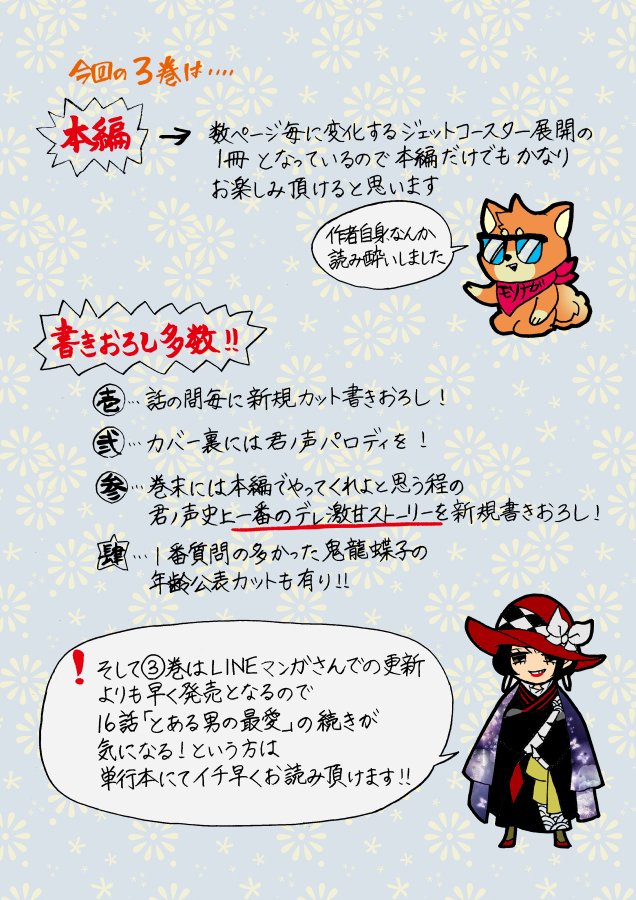 今回の3巻は‥‥
本編
→ 数ページ毎に変化するジェットコースター展開の
1冊となっているので本編だけでもかなり
お楽しみ頂けると思います
作者自身なんか
読み酔いしました
モリナガ
書きおろし多数!!
壱…話の間毎に新規カット書きおろし!
弐…カバー裏には君ノ声パロディを!
参…巻末には本編でやってくれよと思う程の
君ノ声史上一番のデレ激甘ストーリーを新規書きおろし!
肆…1番質問の多かった鬼龍蝶子の
年齢公表カットも有り!!
! そして③巻はLINEマンガさんでの更新
よりも早く発売となるので
16話「とある男の最愛」の続きが
気になる!という方は
単行本にてイチ早くお読み頂けます!!